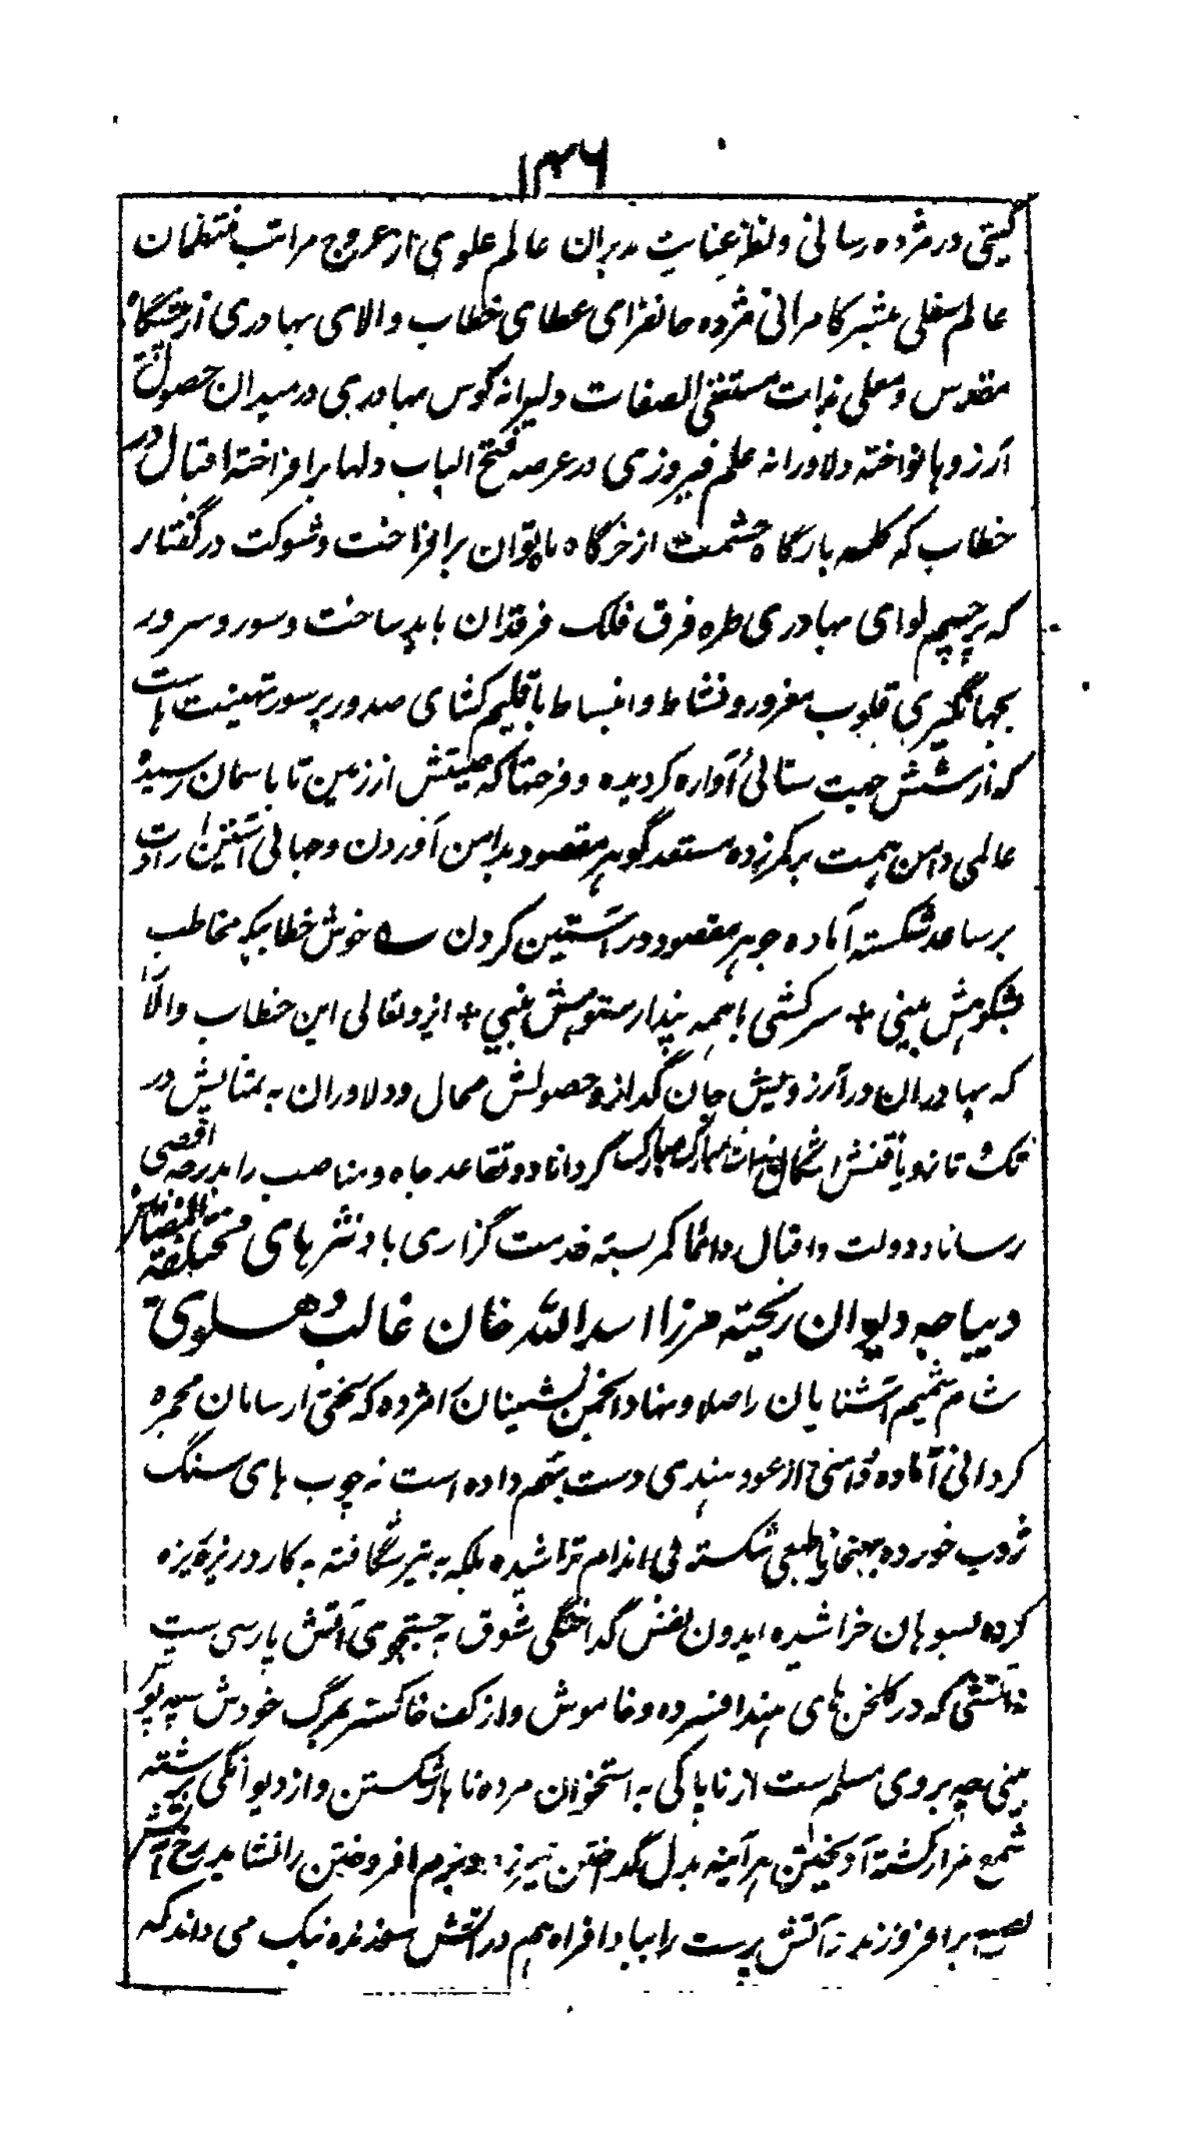 ۱۳۶
گیتی در مژده رسانی و نظر عنایت مدبران عالم علوی از عروج مراتب منتظمان
عالم سفلی مبشر کامرانی مژده جانفزای عطای خطاب والای بهادری از پیشگاه
مقدس و معلی بذات مستغنی الصفات دلیرانه کوس بهادری در میدان حصول
آرزوها نواخته دلاورانه علم فیروزی در عرصه فتح الباب دلها برافراخته اقبال در
خطاب که کلمه بارگاه حشمت از خرگاه ماه توان برافراخت و شوکت در گفتار
که پرچم لوای بهادری طره فرق فلک فرقدان باید ساخت و سور و سرور
بجهانگیری قلوب مغرور و نشاط و انبساط باقلیم کشای صدور پر سور تهنیت هاست
که از شش جهت ستائی آواره گردیده و فرحتها که صیتش از زمین تا باسمان رسیده
عالمی دامن همت بر کمر زده مستعد گوهر مقصود بدامن آوردن و جهانی آستین ارادت
بر ساعد شکسته آماده جوهر مقصود در آستین کردن ے خوش خطابیکه مخاطب
بشکوهش بینی + سرکشی با همه پندار ستوهش بینی + ایزد تعالی این خطاب والا را
که بهادران در آرزویش جان گداز و حصولش محال و دلاوران به تمنایش در
تک و تاز و یافتنش اشکال مبارک مبارک گرداناد و تقاعد جاه و مناصب را بدرجه اقصی
رساناد و دولت و اقبال دائما کمر بسته خدمت گزاری باد نثرهای مختلفه
دیباچه دیوان ریخته مرزا اسد الله خان غالب دهلوی
مشام شمیم آشنایان را صلا و نهاد انجمن نشینان را مژده که لختی از سامان مجمره
گردانی آماده و دامنی از عود هندی دست بهم داده است نه چوب های سنگ
زوب خورده بهنجار نا طبعی شکسته بی اندام تراشیده بلکه به تبر شگافته به کارد ریزه ریزه
کرده بسوهان خراشیده ایدون نفس گداختگی شوق به جستجوی آتش پارسی ست
نه آتشی که در گلخن های هند افسرده و خاموش و از کف خاکستر بمرگ خودش سیه پوش
بینی چه بروی مسلم ست از ناپاکی به استخوان مرده ناهار شکستن و از دیوانگی برشته
شمع مزار کشته آویختن هر آئینه بدل گداختن نیرزد و بزم افروختن را نشاید رخ آتش
بصنع برافروزنده آتش پرست را ببادافراه هم در آتش سوزنده نیک می داند که